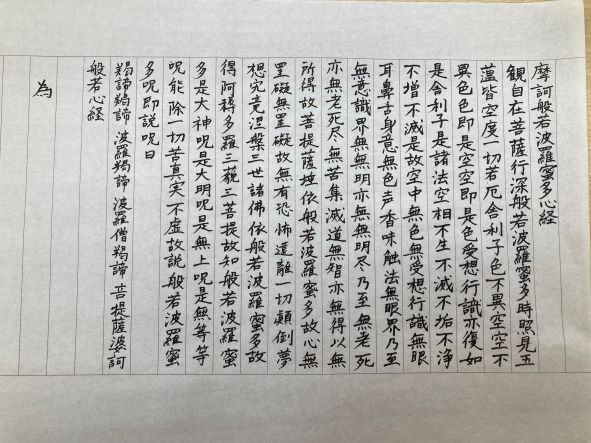 摩訶般若波羅蜜多心経
観自在菩薩行深般若波羅蜜多時照見五
蘊皆空度一切苦厄舎利子色不異空空不
異色色即是空空即是色受想行識亦復如
是舎利子是諸法空相不生不滅不垢不浄
不増不減是故空中無色無受想行識無眼
耳鼻舌身意無色声香味触法無眼界乃至
無意識界無無明亦無無明尽乃至無老死
亦無老死尽無苦集滅道無智亦無得以無
所得故菩提薩埵依般若波羅蜜多故心無
罣礙無罣礙故無有恐怖遠離一切顛倒夢
想究竟涅槃三世諸佛依般若波羅蜜多故
得阿耨多羅三藐三菩提故知般若波羅蜜
多是大神呪是大明呪是無上呪是無等等
呪能除一切苦真実不虚故説般若波羅蜜
多呪即説呪曰
羯諦羯諦 波羅羯諦 波羅僧羯諦 菩提薩婆訶
般若心経
為